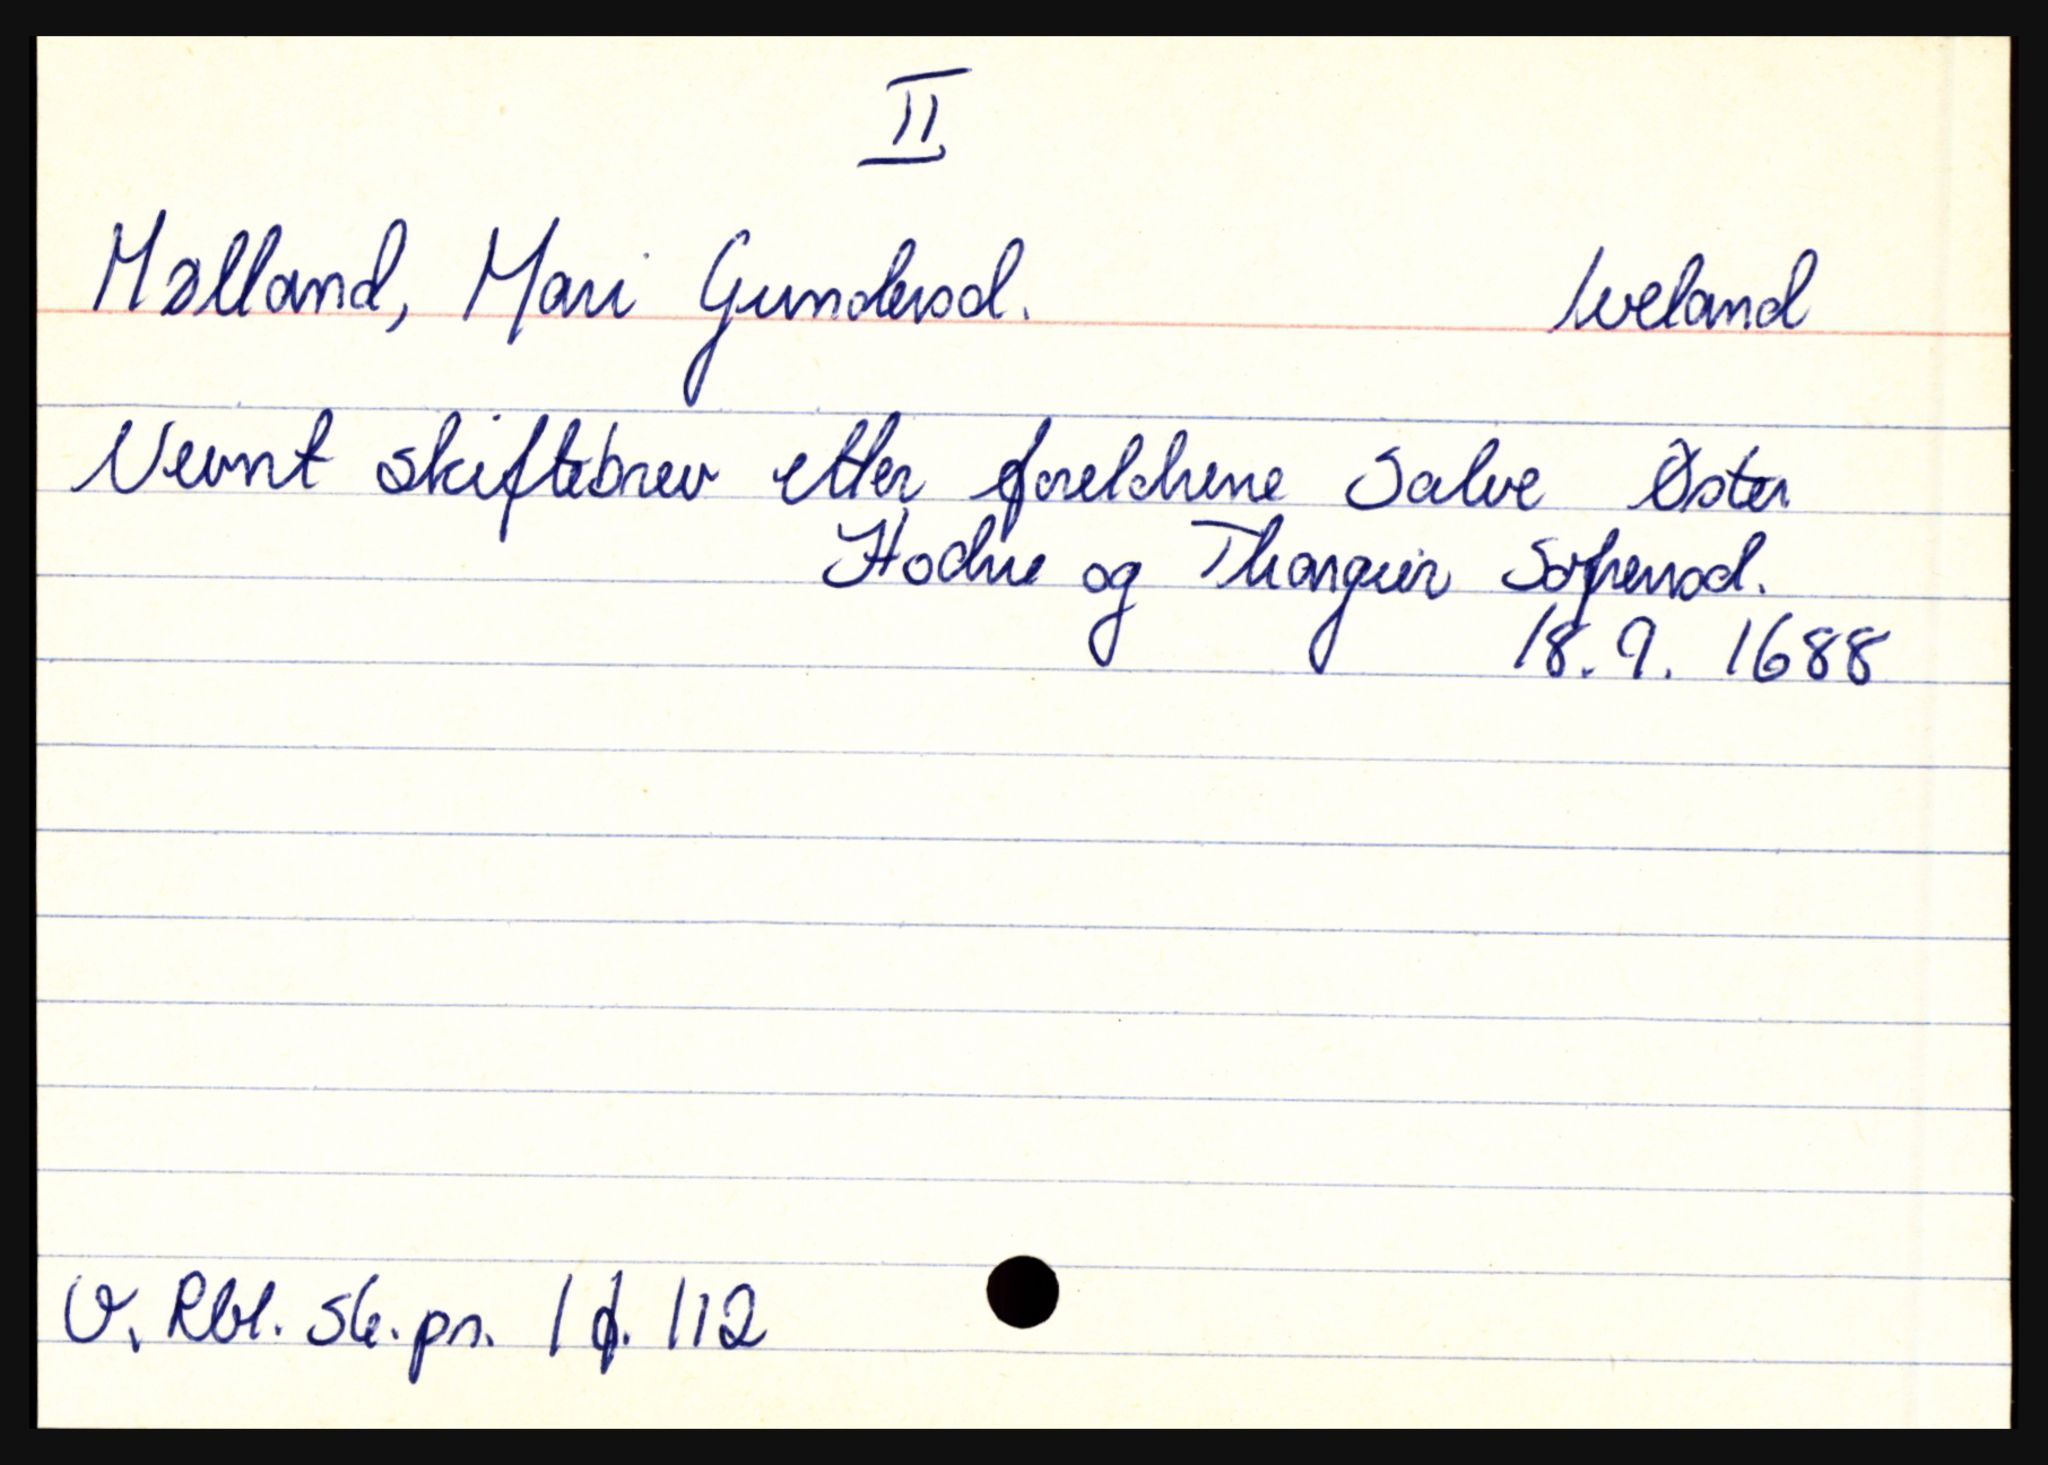 II
Mølland, Mari Gundersd. Iveland
Nevnt skiftebrev etter foreldrene Salve Øster
Hodne og Thorgier Sofrensd.
18.9. 1688
V. Rbl. sk.pr. 1 f. 112